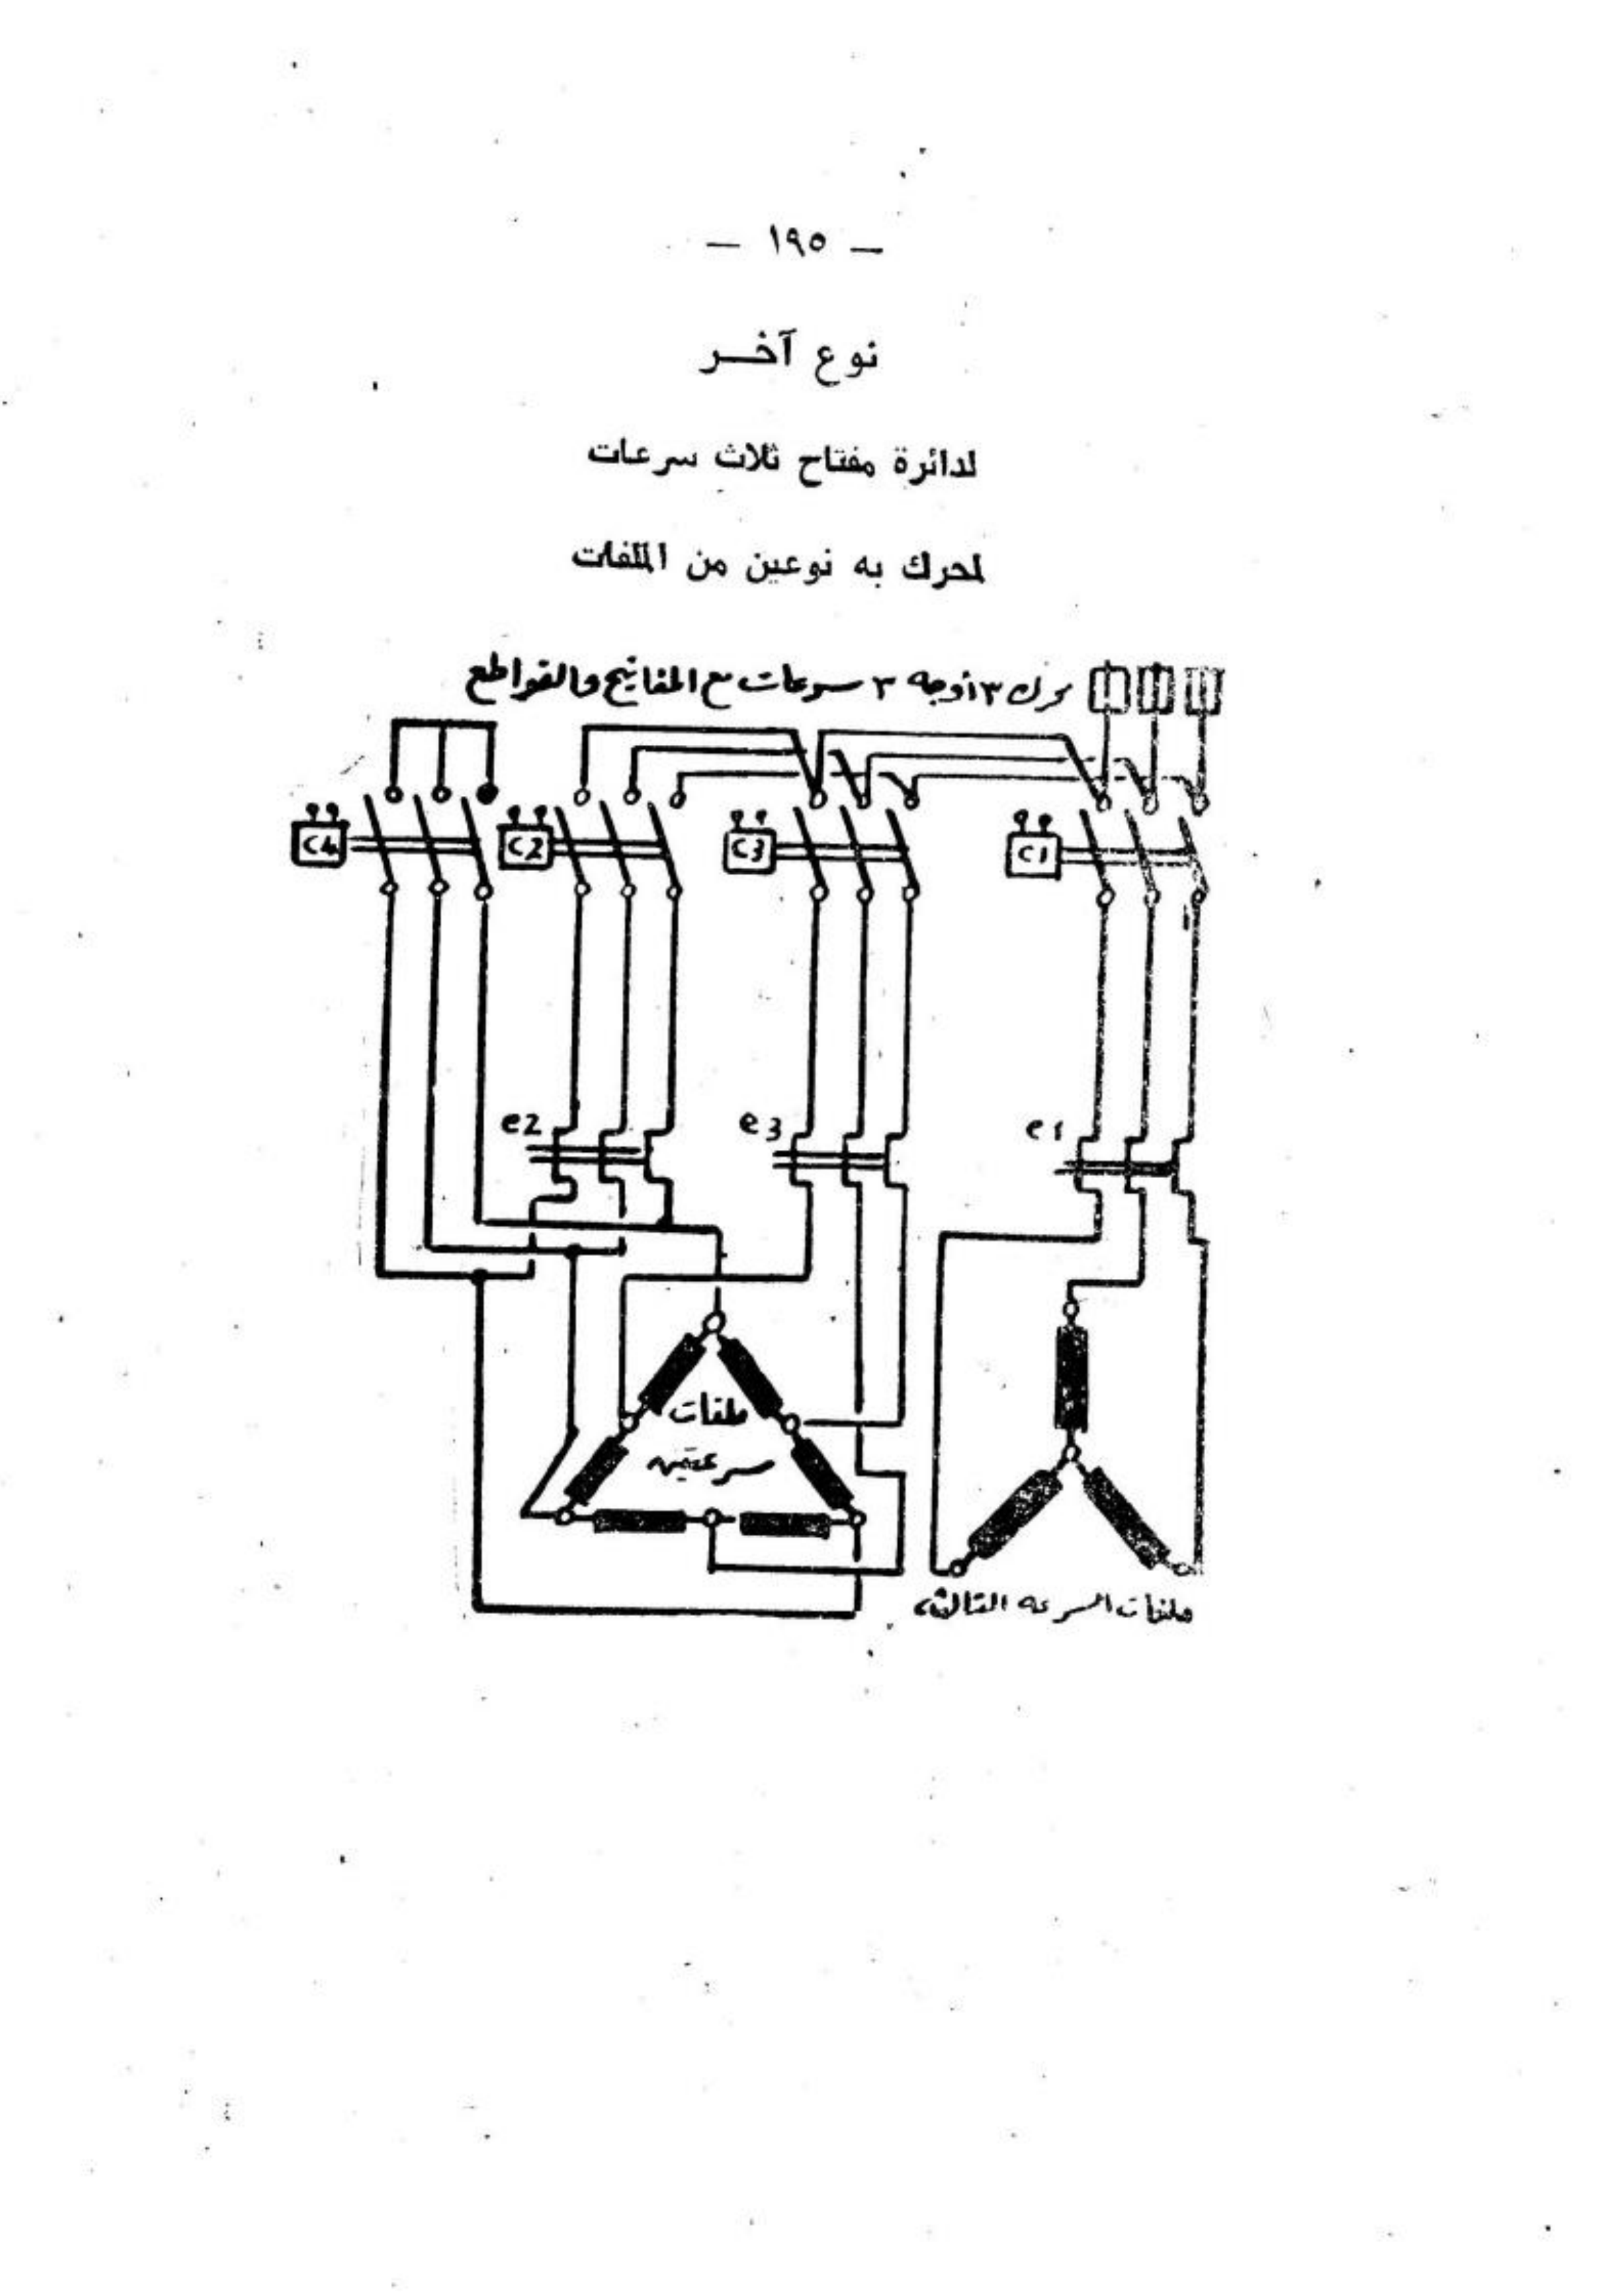 — ١٩٥ —
نوع آخر
لدائرة مفتاح ثلاث سرعات
لمحرك به نوعين من الملفات
محرك ٣ أوجه ٣ سرعات مع المفاتيح والقواطع
C4 C2 C3 C1
e2 e3 e1
ملفات
سرعتين
ملفات السرعه الثالثه